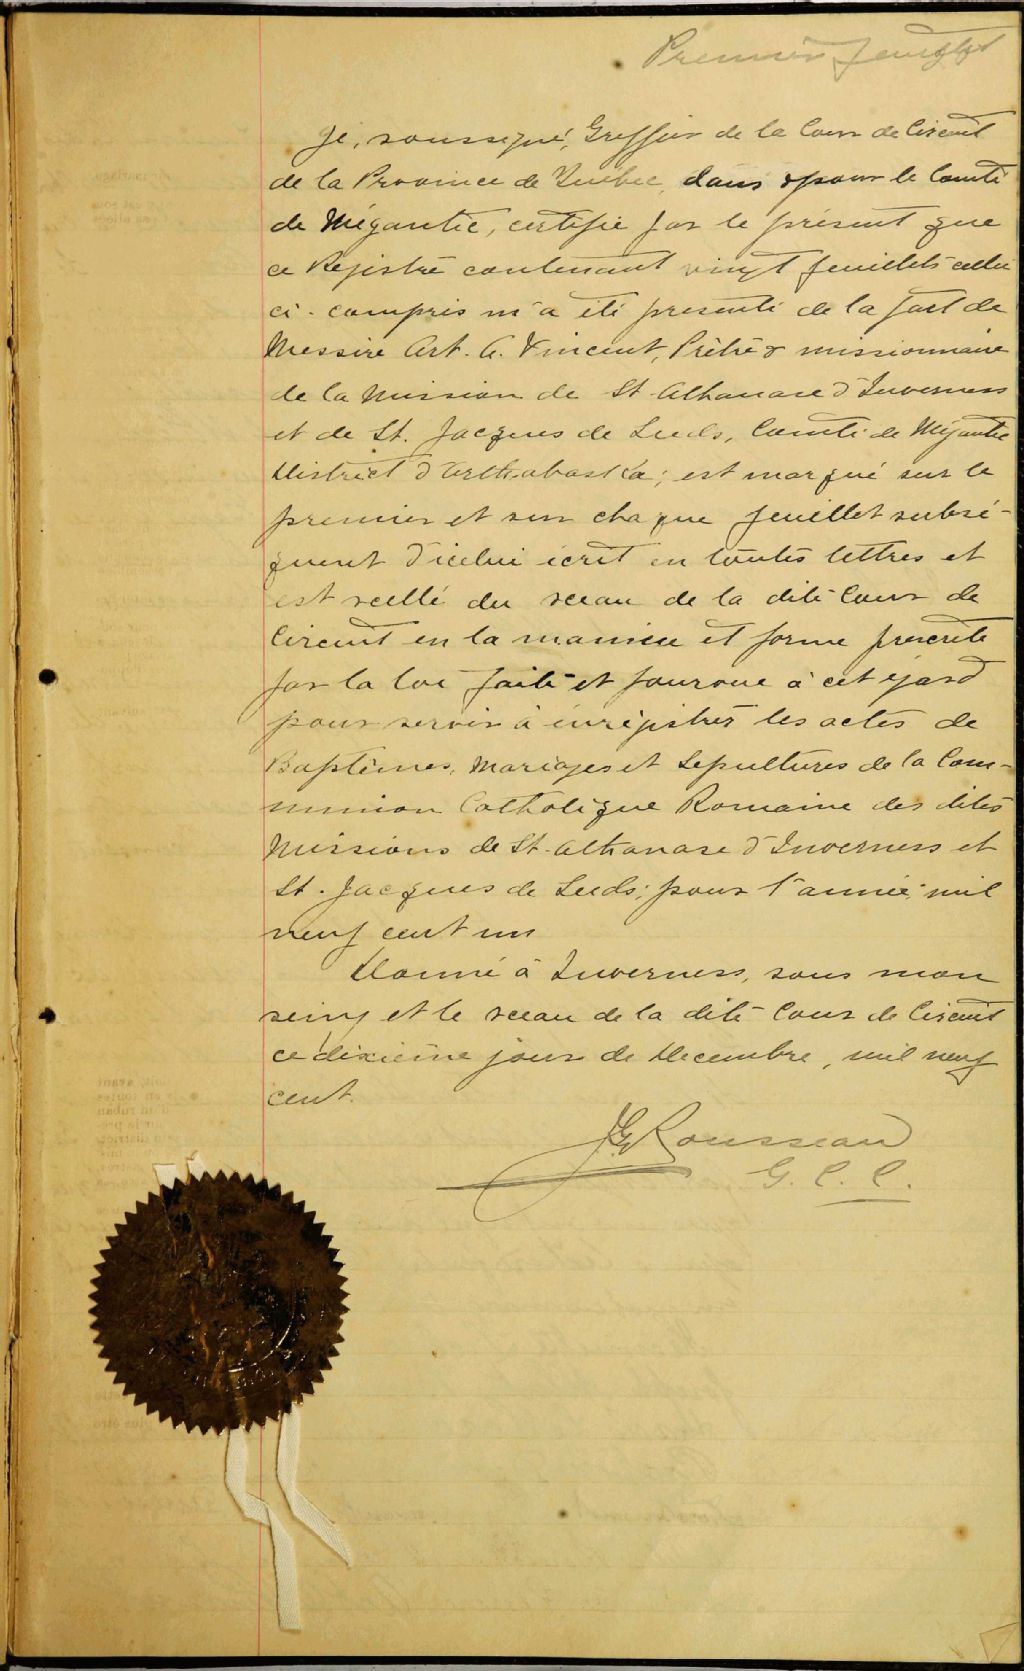 Premier feuillet
Je, soussigné, Greffier de la Cour de Circuit
de la Province de Québec, dans & pour le Comté
de Mégantic, certifie par le présent que
ce Registre contenant vingt feuillets celui
ci-compris m'a été présenté de la part de
Messire Art. A. Vincent, Prêtre & missionnaire
de la Mission de St Athanase d'Inverness
et de St. Jacques de Leeds, Comté de Mégantic
District d'Arthabaska; est marqué sur le
premier et sur chaque feuillet subsé-
quent d'icelui écrit en toutes lettres et
est scellé du sceau de la dite Cour de
Circuit en la manière et forme prescrite
par la loi faite et pourvue à cet égard
pour servir à enrégistrer les actes de
Baptêmes, Mariages et Sépultures de la Com-
munion Catholique Romaine des dites
Missions de St-Athanase d'Inverness et
St. Jacques de Leeds; pour l'année mil
neuf cent un
Donné à Inverness, sous mon
seing et le sceau de la dite Cour de Circuit
ce dixième jour de Décembre, mil neuf
cent.
JG Rousseau
G. C. C.